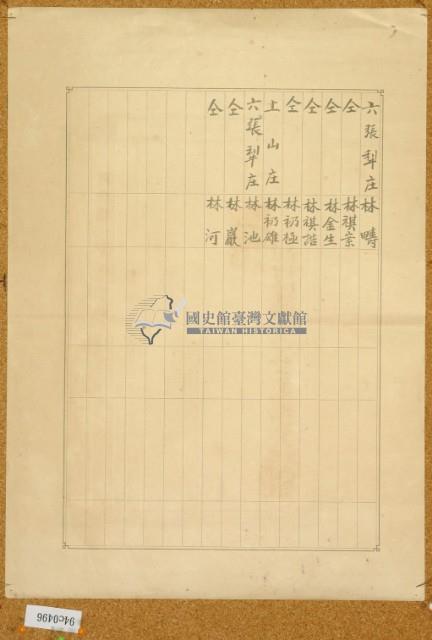 六張犁庄 林疇
仝 林祺崇
仝 林金生
仝 林祺誥
仝 林礽極
土山庄 林礽雄
六張犁庄 林池
仝 林巖
仝 林河
國史館臺灣文獻館
TAIWAN HISTORICA
94c0496